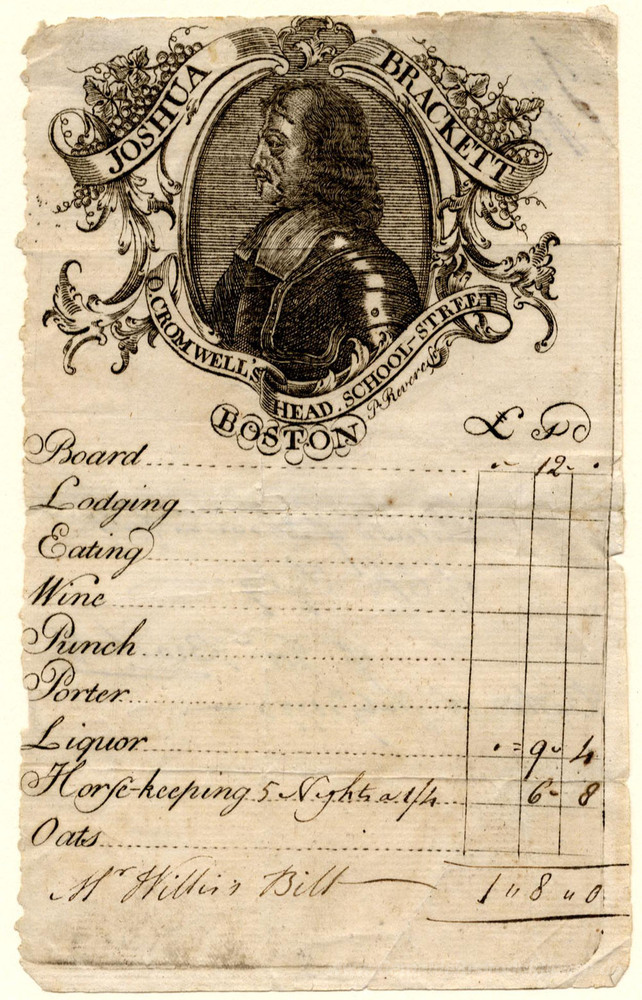 JOSHUA BRACKETT
O. CROMWELL'S HEAD. SCHOOL-STREET
P. Revere Sc
BOSTON
£ S D
Board - 12 -
Lodging
Eating
Wine
Punch
Porter
Liquor 9 4
Horſe-keeping 5 Nights a 1/4 6 8
Oats
Mr Willis's Bill 1 " 8 " 0